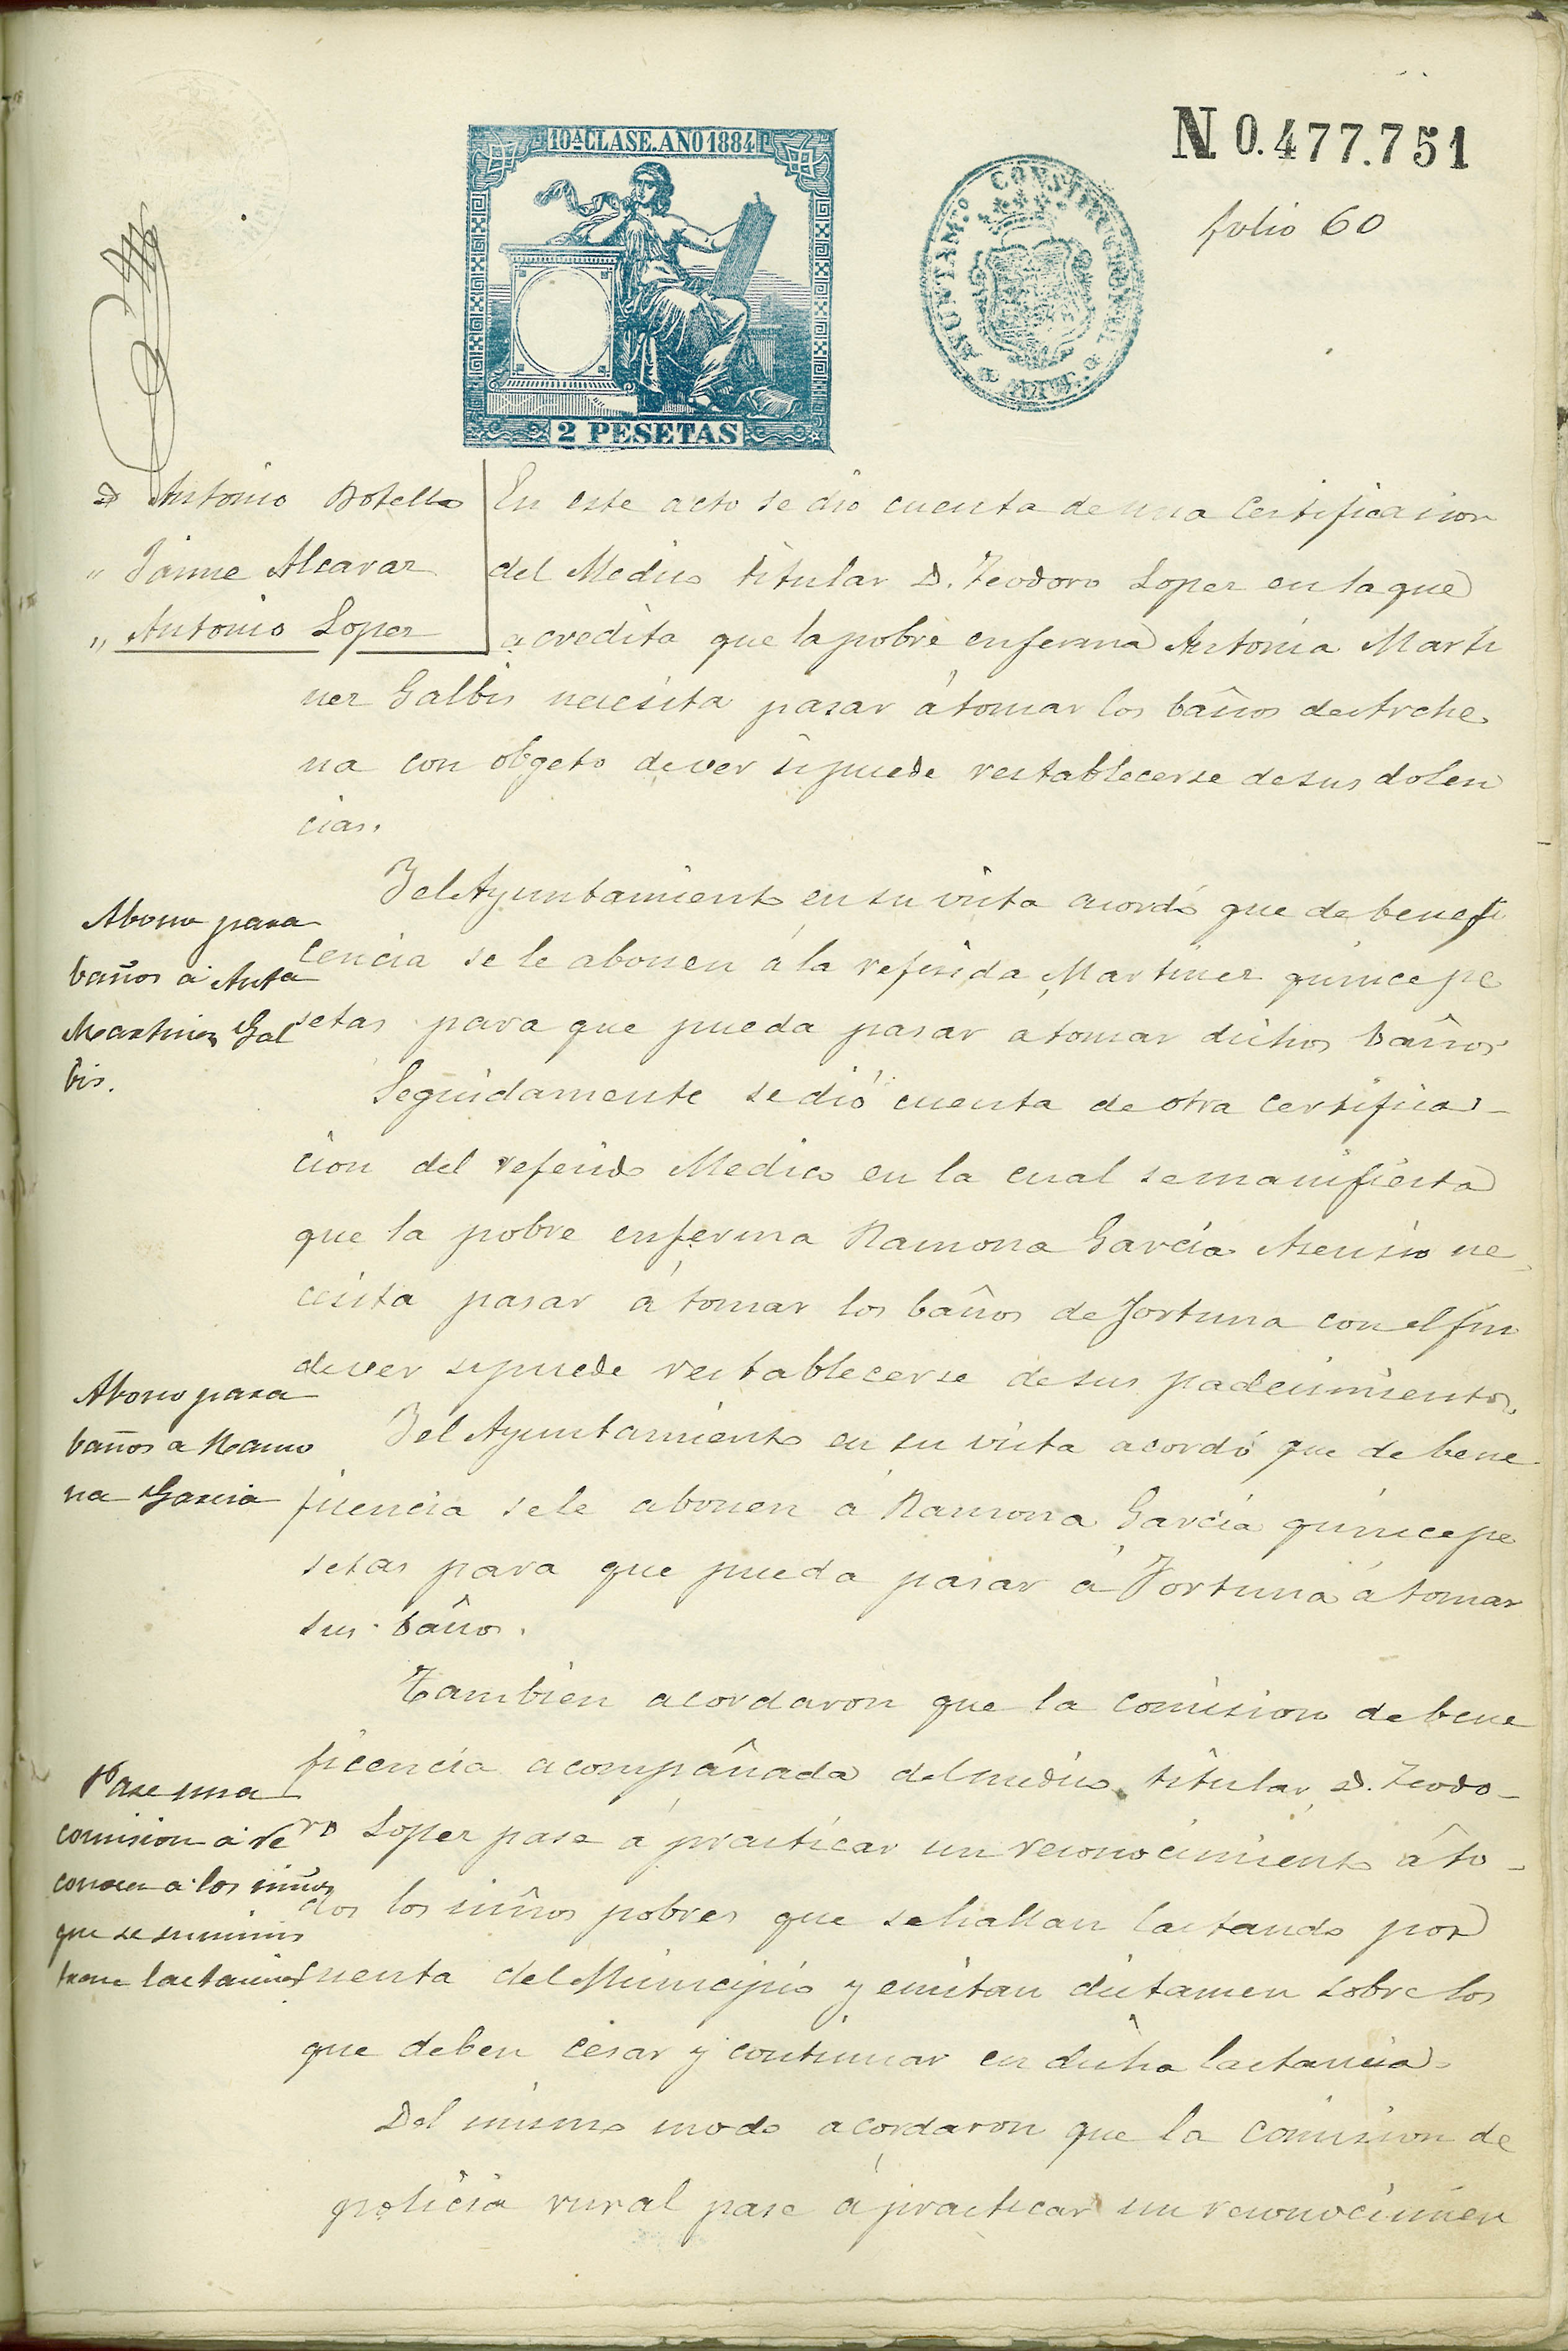 10ª CLASE. AÑO 1884
2 PESETAS
AYUNTAM.TO CONSTITUCIONAL
N 0.477.751
folio 60
D Antonio Botella
" Jaime Alcaraz
" Antonio Lopez
En este acto se dió cuenta de una certificacion
del Medico titular D. Teodoro Lopez en la que
acredita que la pobre enferma Antonia Marti
nez Galbis necesita pasar á tomar los baños de Arche
na con obgeto de ver si puede restablecerse de sus dolen
cias.
Y el Ayuntamiento en su vista acordó que de benefi
cencia se le abonen á la referida Martinez quince pe
setas para que pueda pasar a tomar dichos baños
Abono para
baños á Antª
Martinez Gal
bis.
Seguidamente se dió cuenta de otra certifica-
cion del referido Medico en la cual se manifiesta
que la pobre enferma Ramona García Asensio ne
cesita pasar á tomar los baños de Fortuna con el fin
de ver si puede restablecerse de sus padecimientos.
Y el Ayuntamiento en su vista acordó que de bene
ficencia se le abonen á Ramona García quince pe
setas para que pueda pasar á Fortuna á tomar
sus baños.
Abono para
baños a Ramo
na Garcia
Tambien acordaron que la comision de bene
ficencia acompañada del medico titular D. Teodo-
ro Lopez pase á practicar un reconocimiento á to-
dos los niños pobres que se hallan lactando por
cuenta del Municipio y emitan dictamen sobre los
que deben cesar y continuar en dicha lactancia.
Pase una
comision á re
conocer a los niños
que se suminis
tran lactancia
Del mismo modo acordaron que la comision de
policia rural pase á practicar un reconocimien